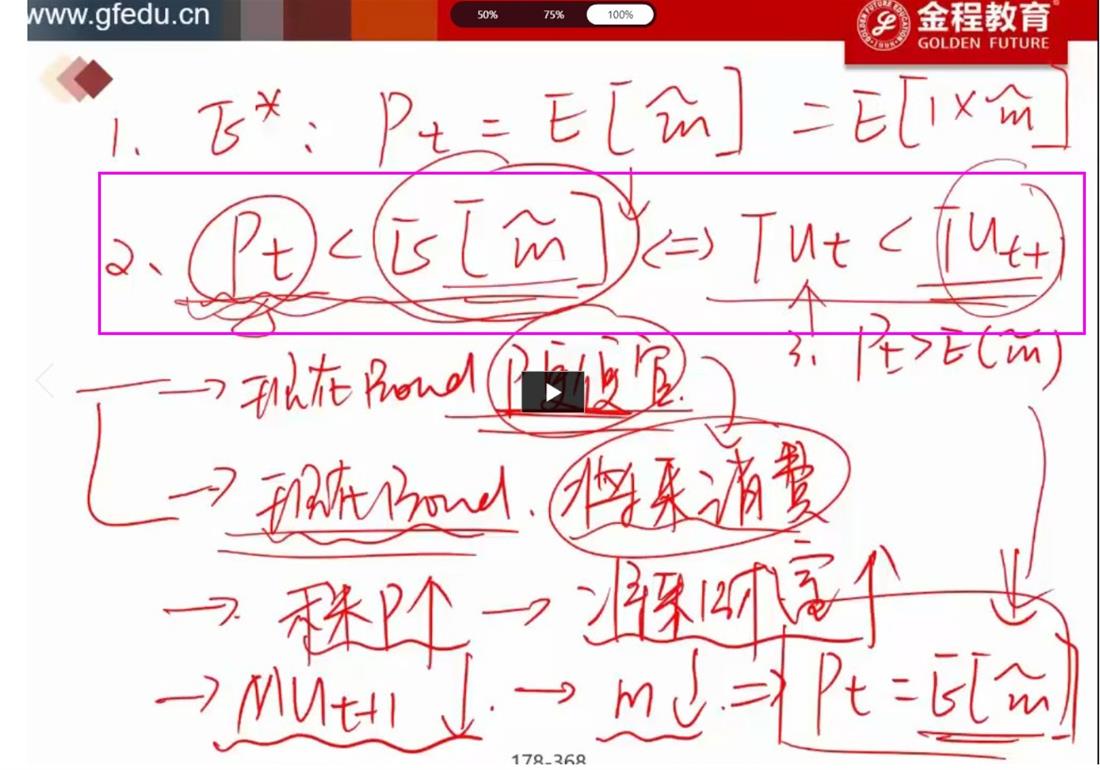 www.gfedu.cn
50% 75% 100%
金程教育®
GOLDEN FUTURE
1. E*: Pt = E[m̃] = E[1×m̃]
2、 Pt < E[m̃] <=> TUt < TUt+1
3. Pt > E(m̃)
→ 现在Bond P更便宜.
→ 现在Bond. 将来消费
→. 未来P↑ → 将来财富↑
→ MUt+1 ↓. → m↓. => Pt = E[m̃]
178-368